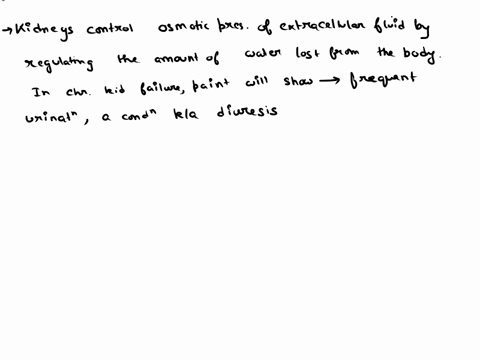 → Kidneys control osmotic pres. of extracellular fluid by
regulating the amount of water lost from the body.
In chr. kid failure, paint will show → frequent
urinatⁿ, a condⁿ k/a diuresis